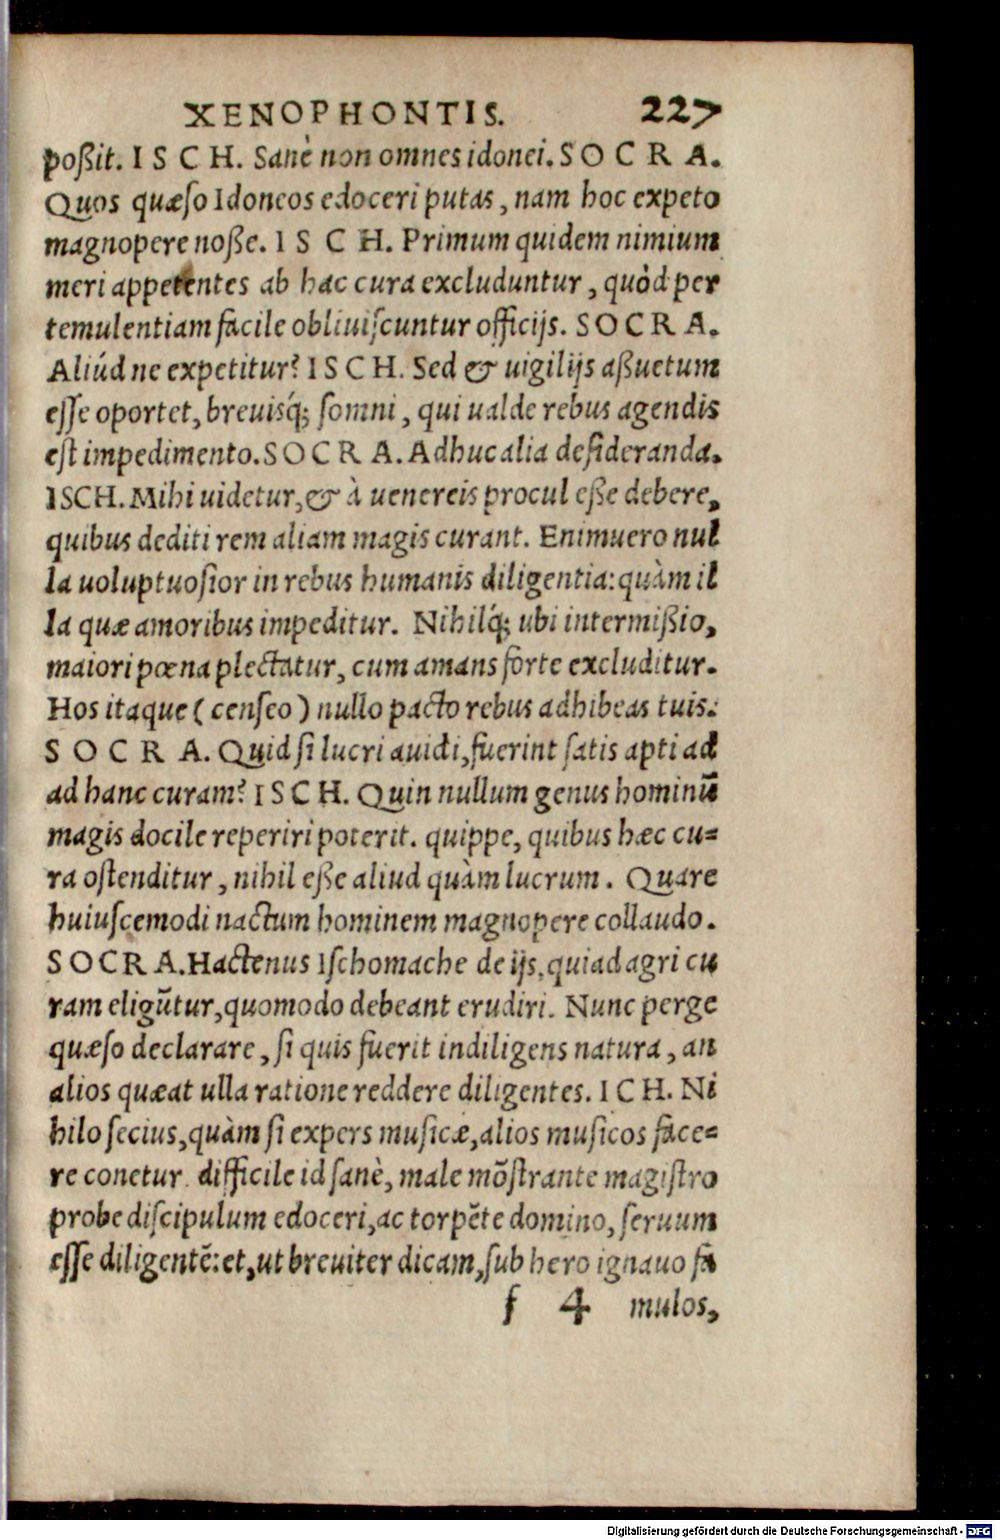 XENOPHONTIS. 227
poßit. ISCH. Sanè non omnes idonei. SOCRA.
Quos quæſo Idoneos edoceri putas, nam hoc expeto
magnopere noße. ISCH. Primum quidem nimium
meri appetentes ab hac cura excluduntur, quòd per
temulentiam facile obliuiſcuntur officijs. SOCRA.
Aliúd ne expetitur? ISCH. Sed & uigilijs aßuetum
eſſe oportet, breuisq́; ſomni, qui ualde rebus agendis
eſt impedimento. SOCRA. Adhuc alia deſideranda.
ISCH. Mihi uidetur, & à uenereis procul eße debere,
quibus dediti rem aliam magis curant. Enimuero nul
la uoluptuoſior in rebus humanis diligentia: quàm il
la quæ amoribus impeditur. Nihilq́; ubi intermißio,
maiori pœna plectatur, cum amans forte excluditur.
Hos itaque (cenſeo) nullo pacto rebus adhibeas tuis:
SOCRA. Quid ſi lucri auidi, fuerint ſatis apti ad
ad hanc curam? ISCH. Quin nullum genus hominū
magis docile reperiri poterit. quippe, quibus hæc cu=
ra oſtenditur, nihil eße aliud quàm lucrum. Quare
huiuſcemodi nactum hominem magnopere collaudo.
SOCRA. Hactenus Iſchomache de ijs, qui ad agri cu
ram eligūtur, quomodo debeant erudiri. Nunc perge
quæſo declarare, ſi quis fuerit indiligens natura, an
alios quæat ulla ratione reddere diligentes. ICH. Ni
hilo ſecius, quàm ſi expers muſicæ, alios muſicos face=
re conetur. difficile id ſanè, male mōſtrante magiſtro
probe diſcipulum edoceri, ac torpēte domino, ſeruum
eſſe diligentē: et, ut breuiter dicam, ſub hero ignauo fa
f 4 mulos,
Digitalisierung gefördert durch die Deutsche Forschungsgemeinschaft - DFG